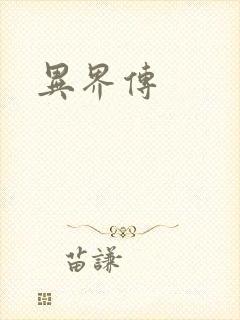 異界傳
苗謙